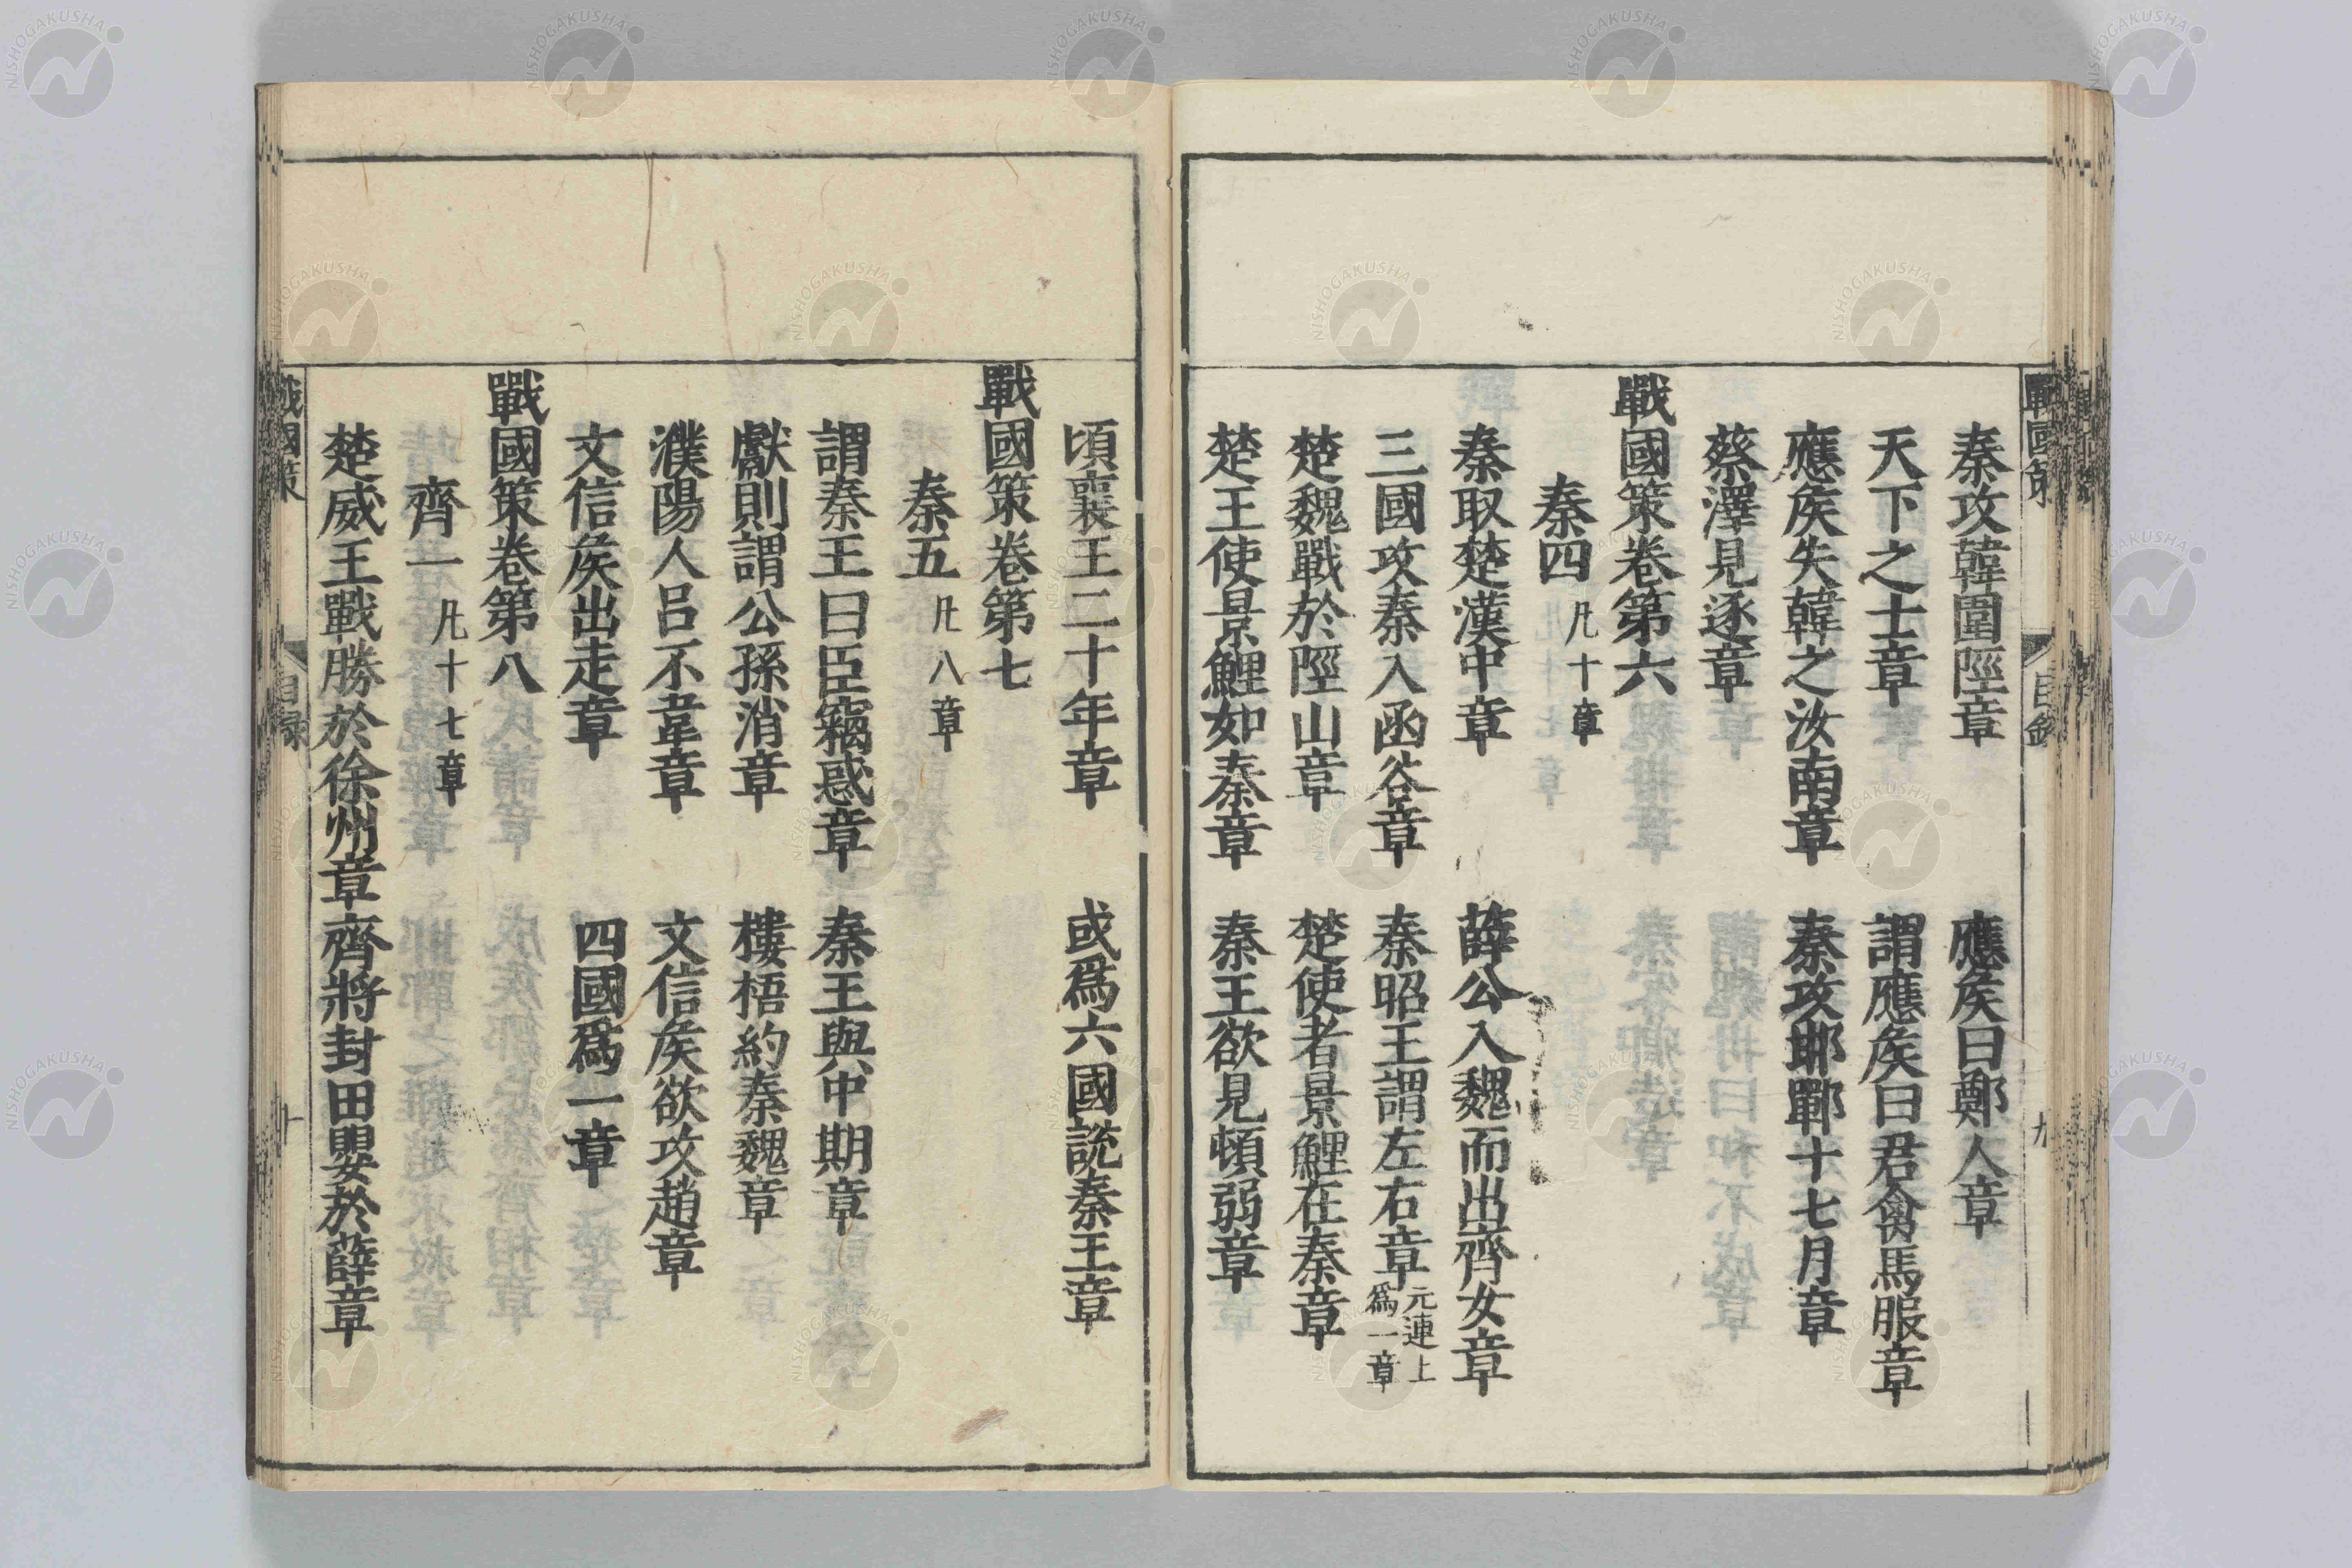 戰國策 目錄 九
秦攻韓圍陘章 應矦曰鄭人章
天下之士章 謂應矦曰君禽馬服章
應矦失韓之汝南章 秦攻邯鄲十七月章
蔡澤見逐章
戰國策卷第六
秦四 凡十章
秦取楚漢中章 薛公入魏而出齊女章
三國攻秦入函谷章 秦昭王謂左右章 元連上爲一章
楚魏戰於陘山章 楚使者景鯉在秦章
楚王使景鯉如秦章 秦王欲見頓弱章
頃襄王二十年章 或爲六國説秦王章
戰國策卷第七
秦五 凡八章
謂秦王曰臣竊惑章 秦王與中期章
獻則謂公孫消章 樓梧約秦魏章
濮陽人呂不韋章 文信矦欲攻趙章
文信矦出走章 四國爲一章
戰國策卷第八
齊一 凡十七章
楚威王戰勝於徐州章 齊將封田嬰於薛章
戰國策 目録 十
NISHOGAKUSHA